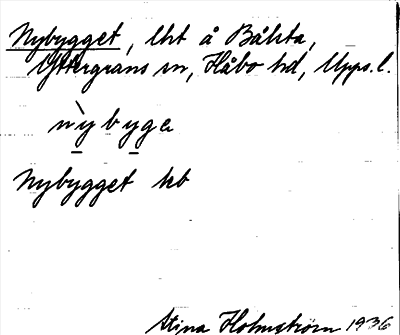 Nybygget, lht å Bålsta,
Yttergrans sn, Håbo hd, Upps. l.
nỳbyge
Nybygget kb
Stina Holmström 1936